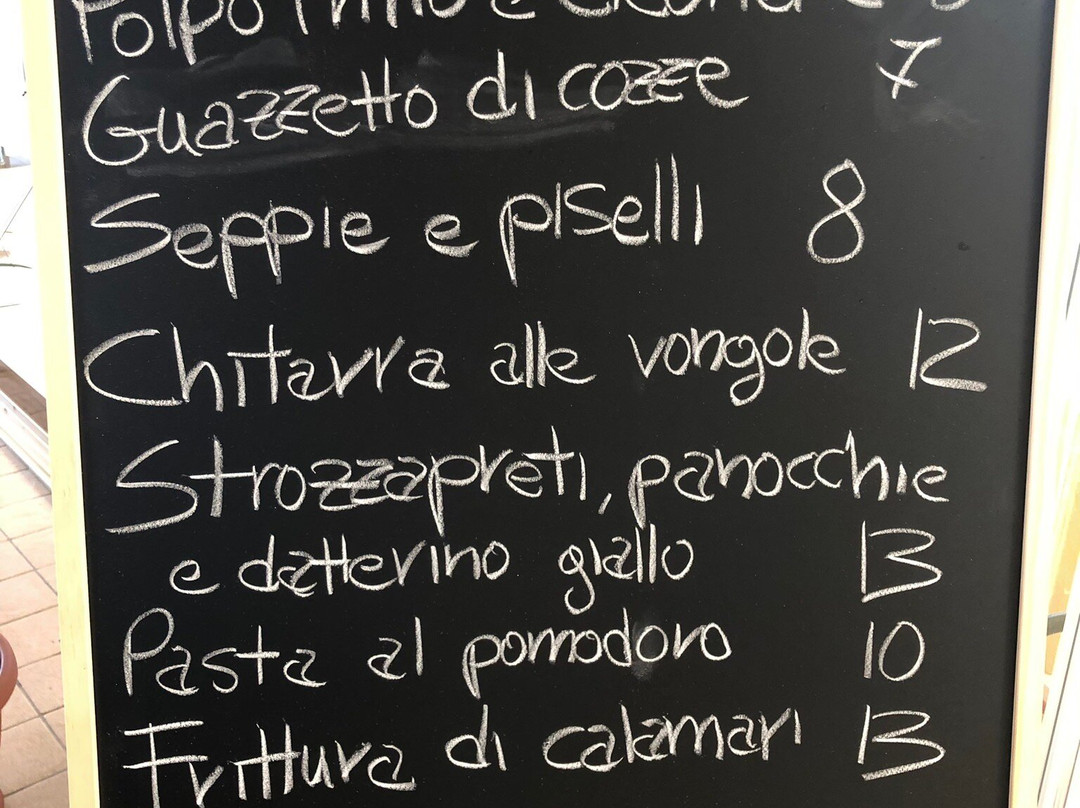 Polpo
Guazzetto di cozze 7
Seppie e piselli 8
Chitarra alle vongole 12
Strozzapreti, panocchie
e datterino giallo 13
Pasta al pomodoro 10
Frittura di calamari 13